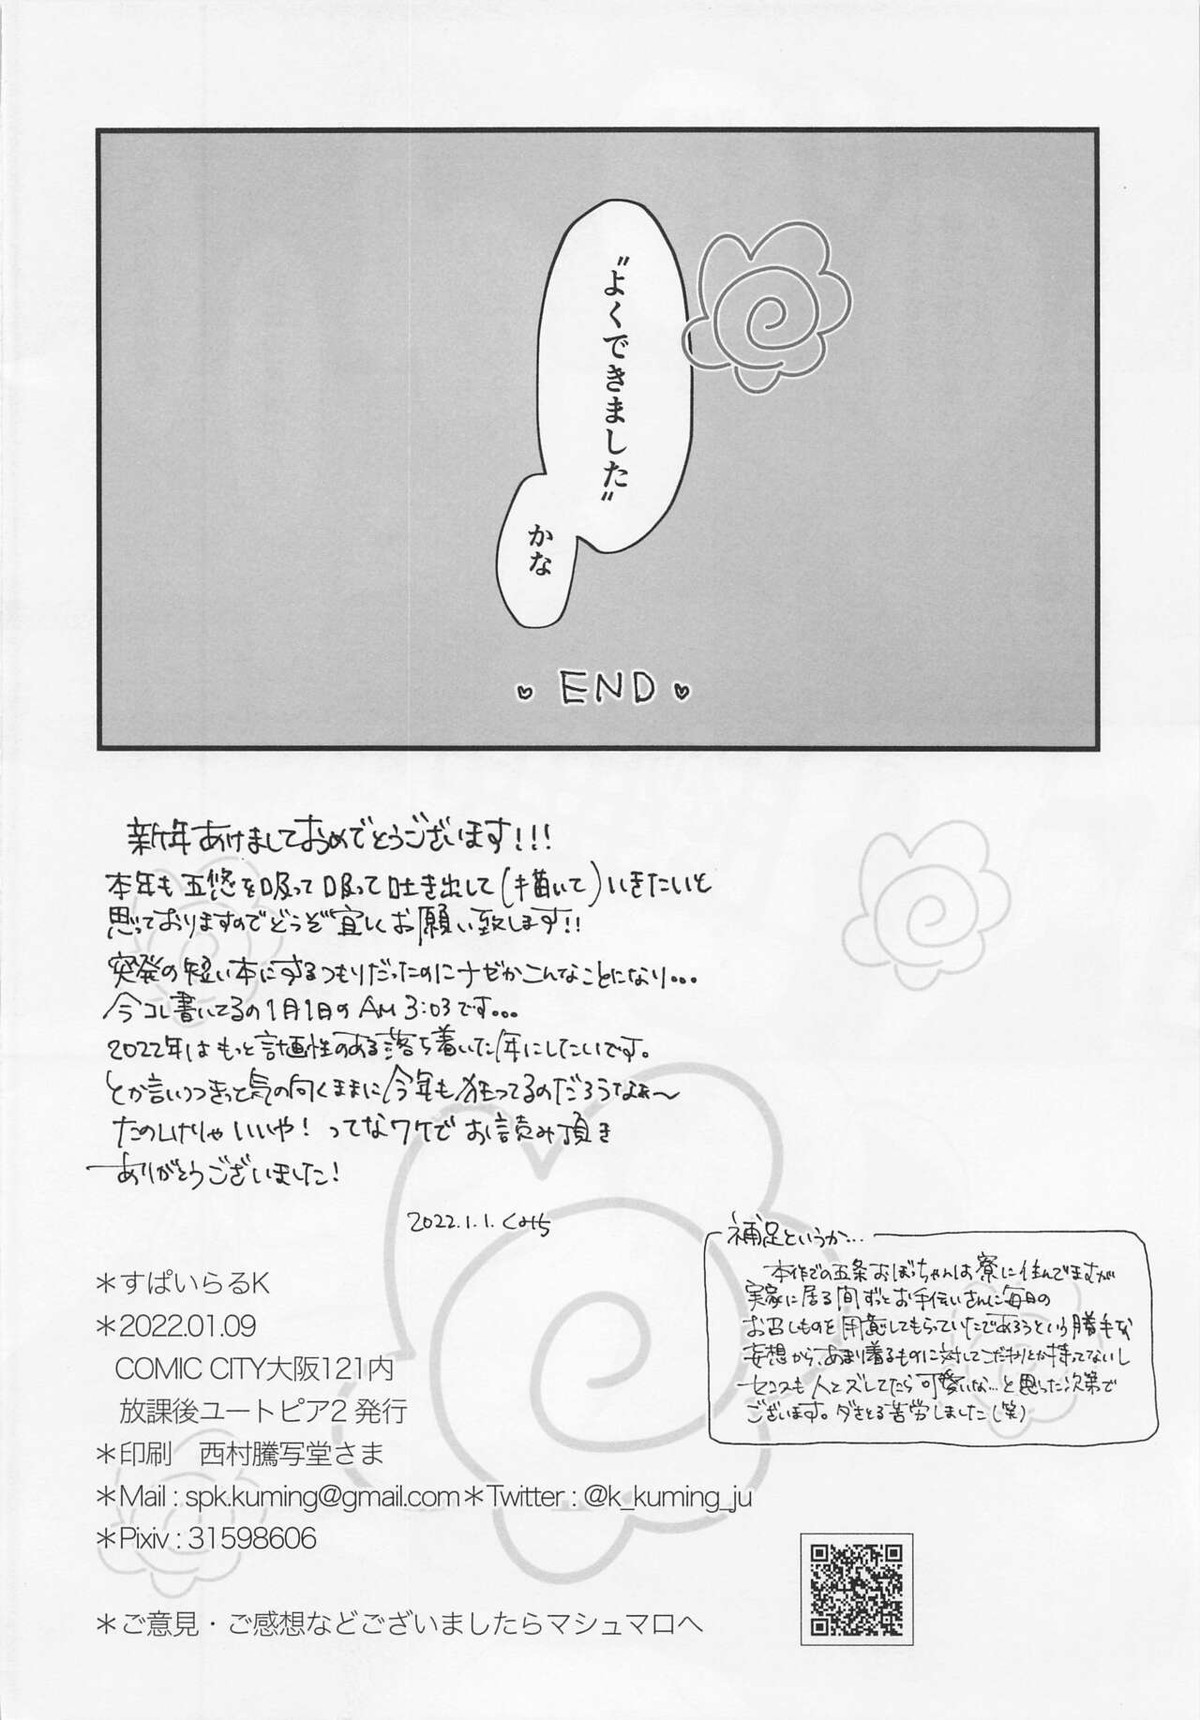 “よくできました”
かな
END
新年あけましておめでとうございます!!!
本年も五悠を吸って吸って吐き出して(描いて)いきたいと
思っておりますのでどうぞ宜しくお願い致します!!
突発の短い本にするつもりだったのにナゼかこんなことになり…
今コレ書いてるの1月1日のAM 3:03です…
2022年はもっと計画性のある落ち着いた年にしたいです。
とか言いつつきっと気の向くままに今年も狂ってるのだろうなぁ〜
たのしけりゃいいや! ってなワケでお読み頂き
ありがとうございました!
2022.1.1.くみち
補足というか…
本作での五条おぼっちゃんは寮に住んでますが
実家に居る間ずっとお手伝いさんに毎日の
お召しものを用意してもらっていたであろうという勝手な
妄想から、あまり着るものに対してこだわりとか持ってないし
センスも人とズレてたら可愛いな…と思った次第で
ございます。ダさくする苦労しました(笑)
＊すぱいらるK
＊2022.01.09
COMIC CITY大阪121内
放課後ユートピア2 発行
＊印刷　西村謄写堂さま
＊Mail : spk.kuming@gmail.com＊Twitter : @k_kuming_ju
＊Pixiv : 31598606
＊ご意見・ご感想などございましたらマシュマロへ